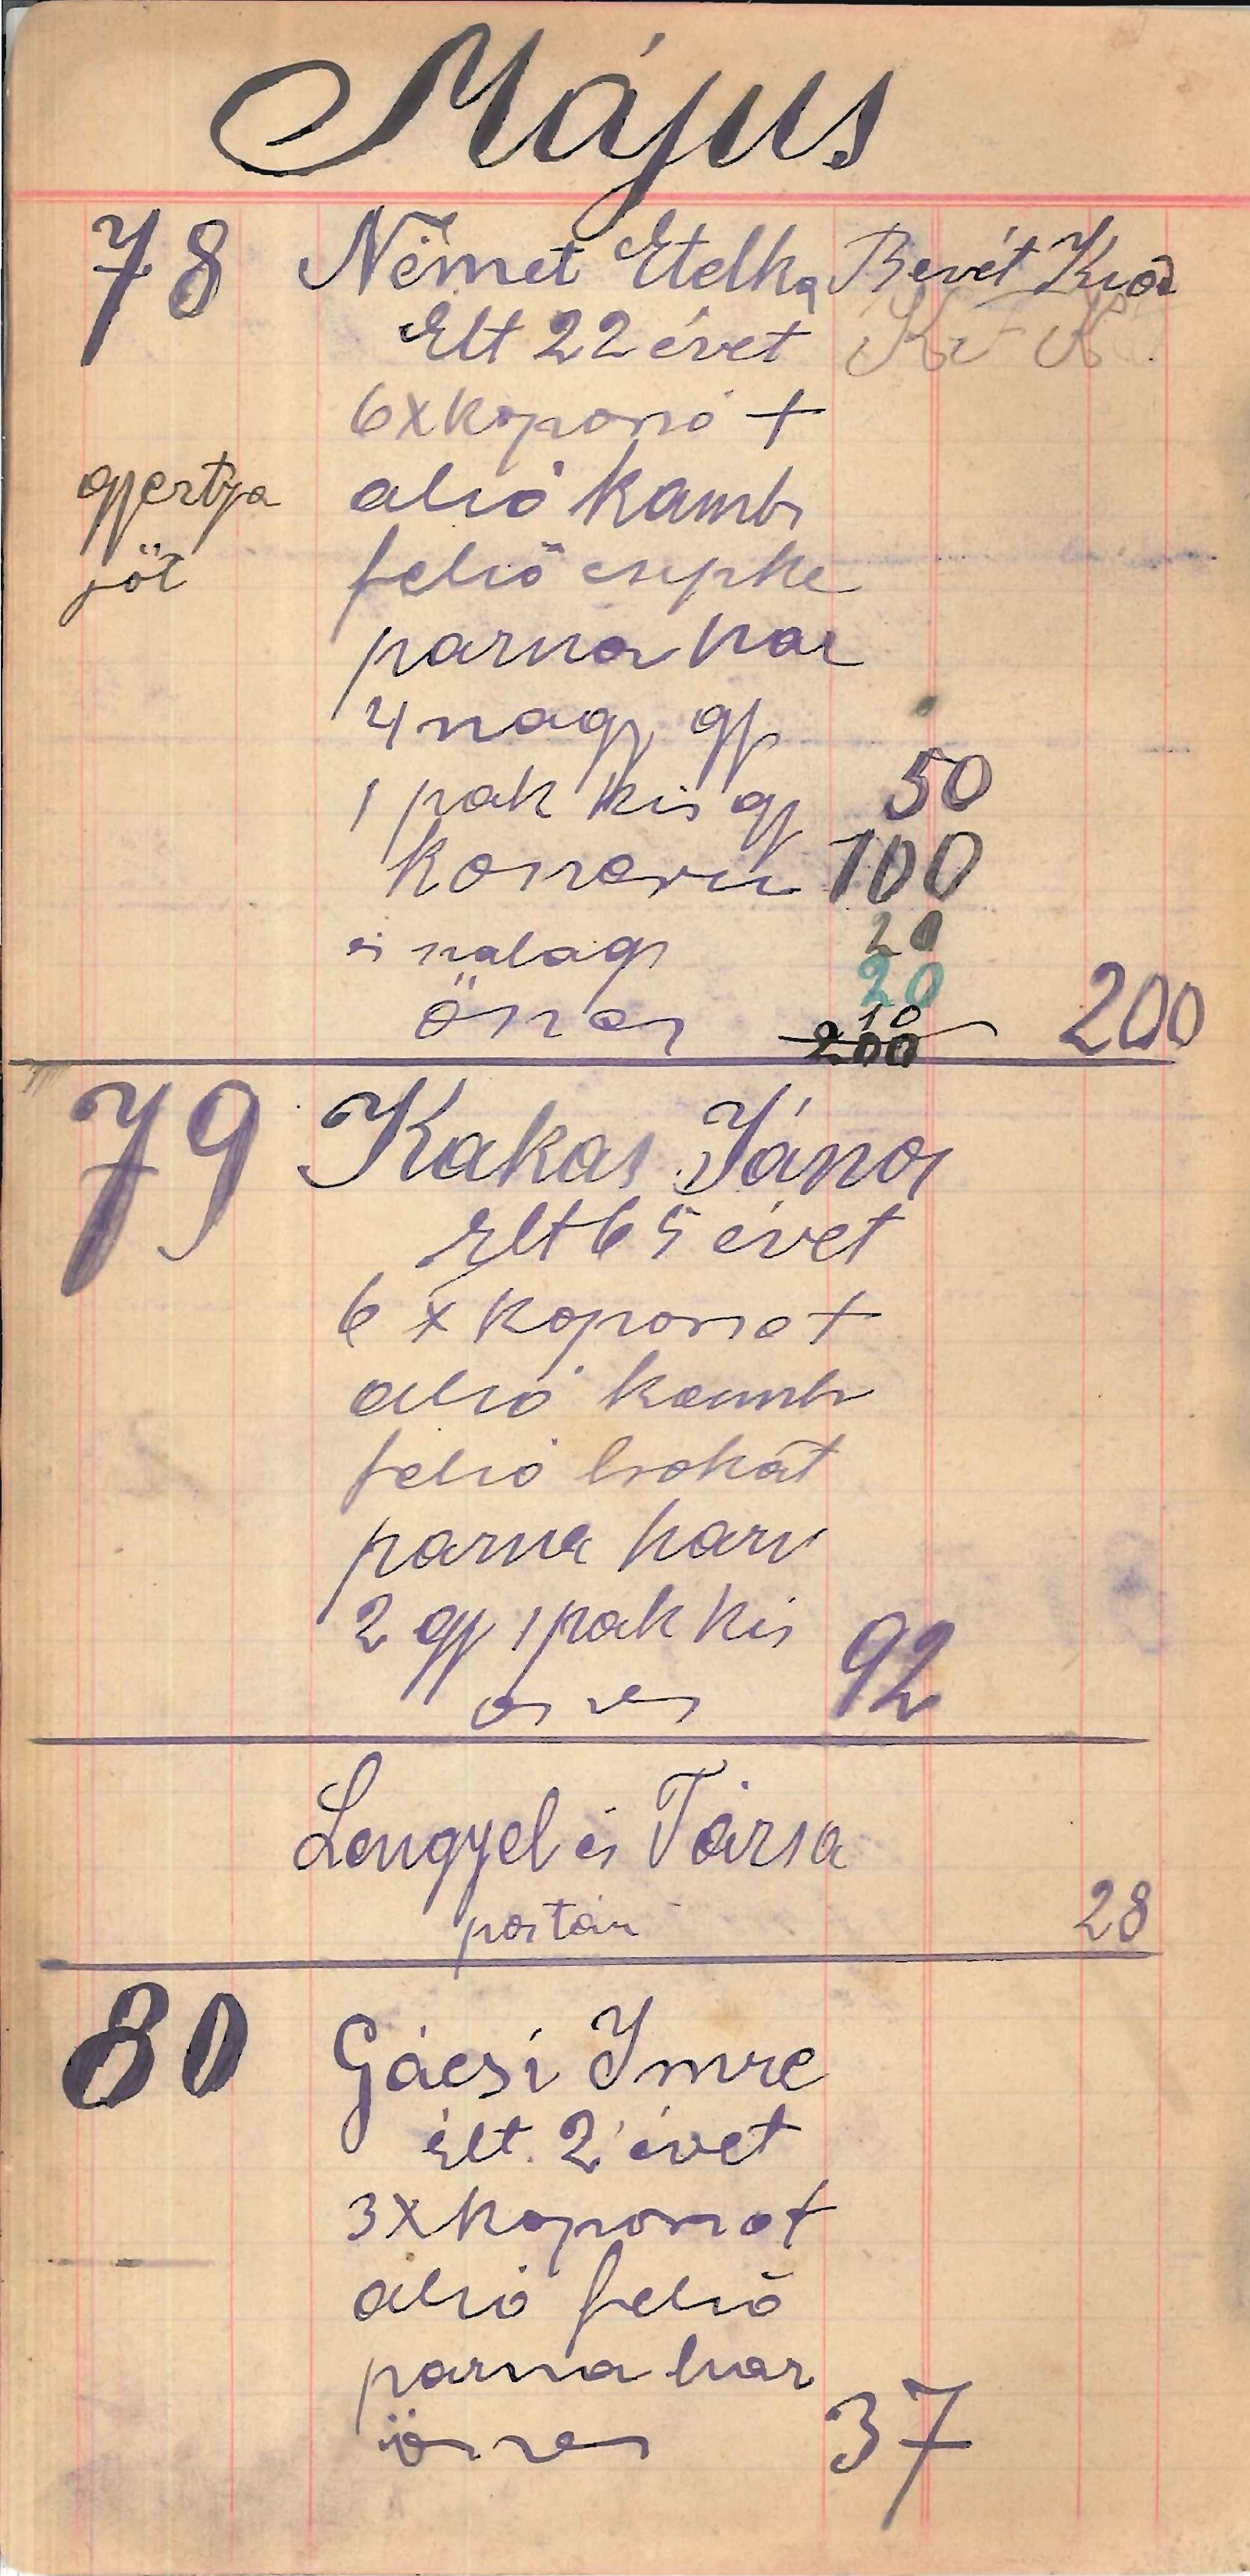 Május
78 Német Etelka Bevét Kiad
Elt 22 évet
6x koporsó +
gyertya alsó kamb
jöt felső csipke
parna har
4 nagy gy
1 pak kis gy 50
koszoru 100
és szalag 20
20
10
öszes 200 200
79 Kakas János
élt 65 évet
6 x koporso +
alsó kamb
felső brokát
parna hars
2 gy 1 pak kis
oszes 92
Lengyel és Társa
postán 28
80 Gácsi Imre
élt. 2 évet
3x koporsot
alsó felső
parna har
öszes 37